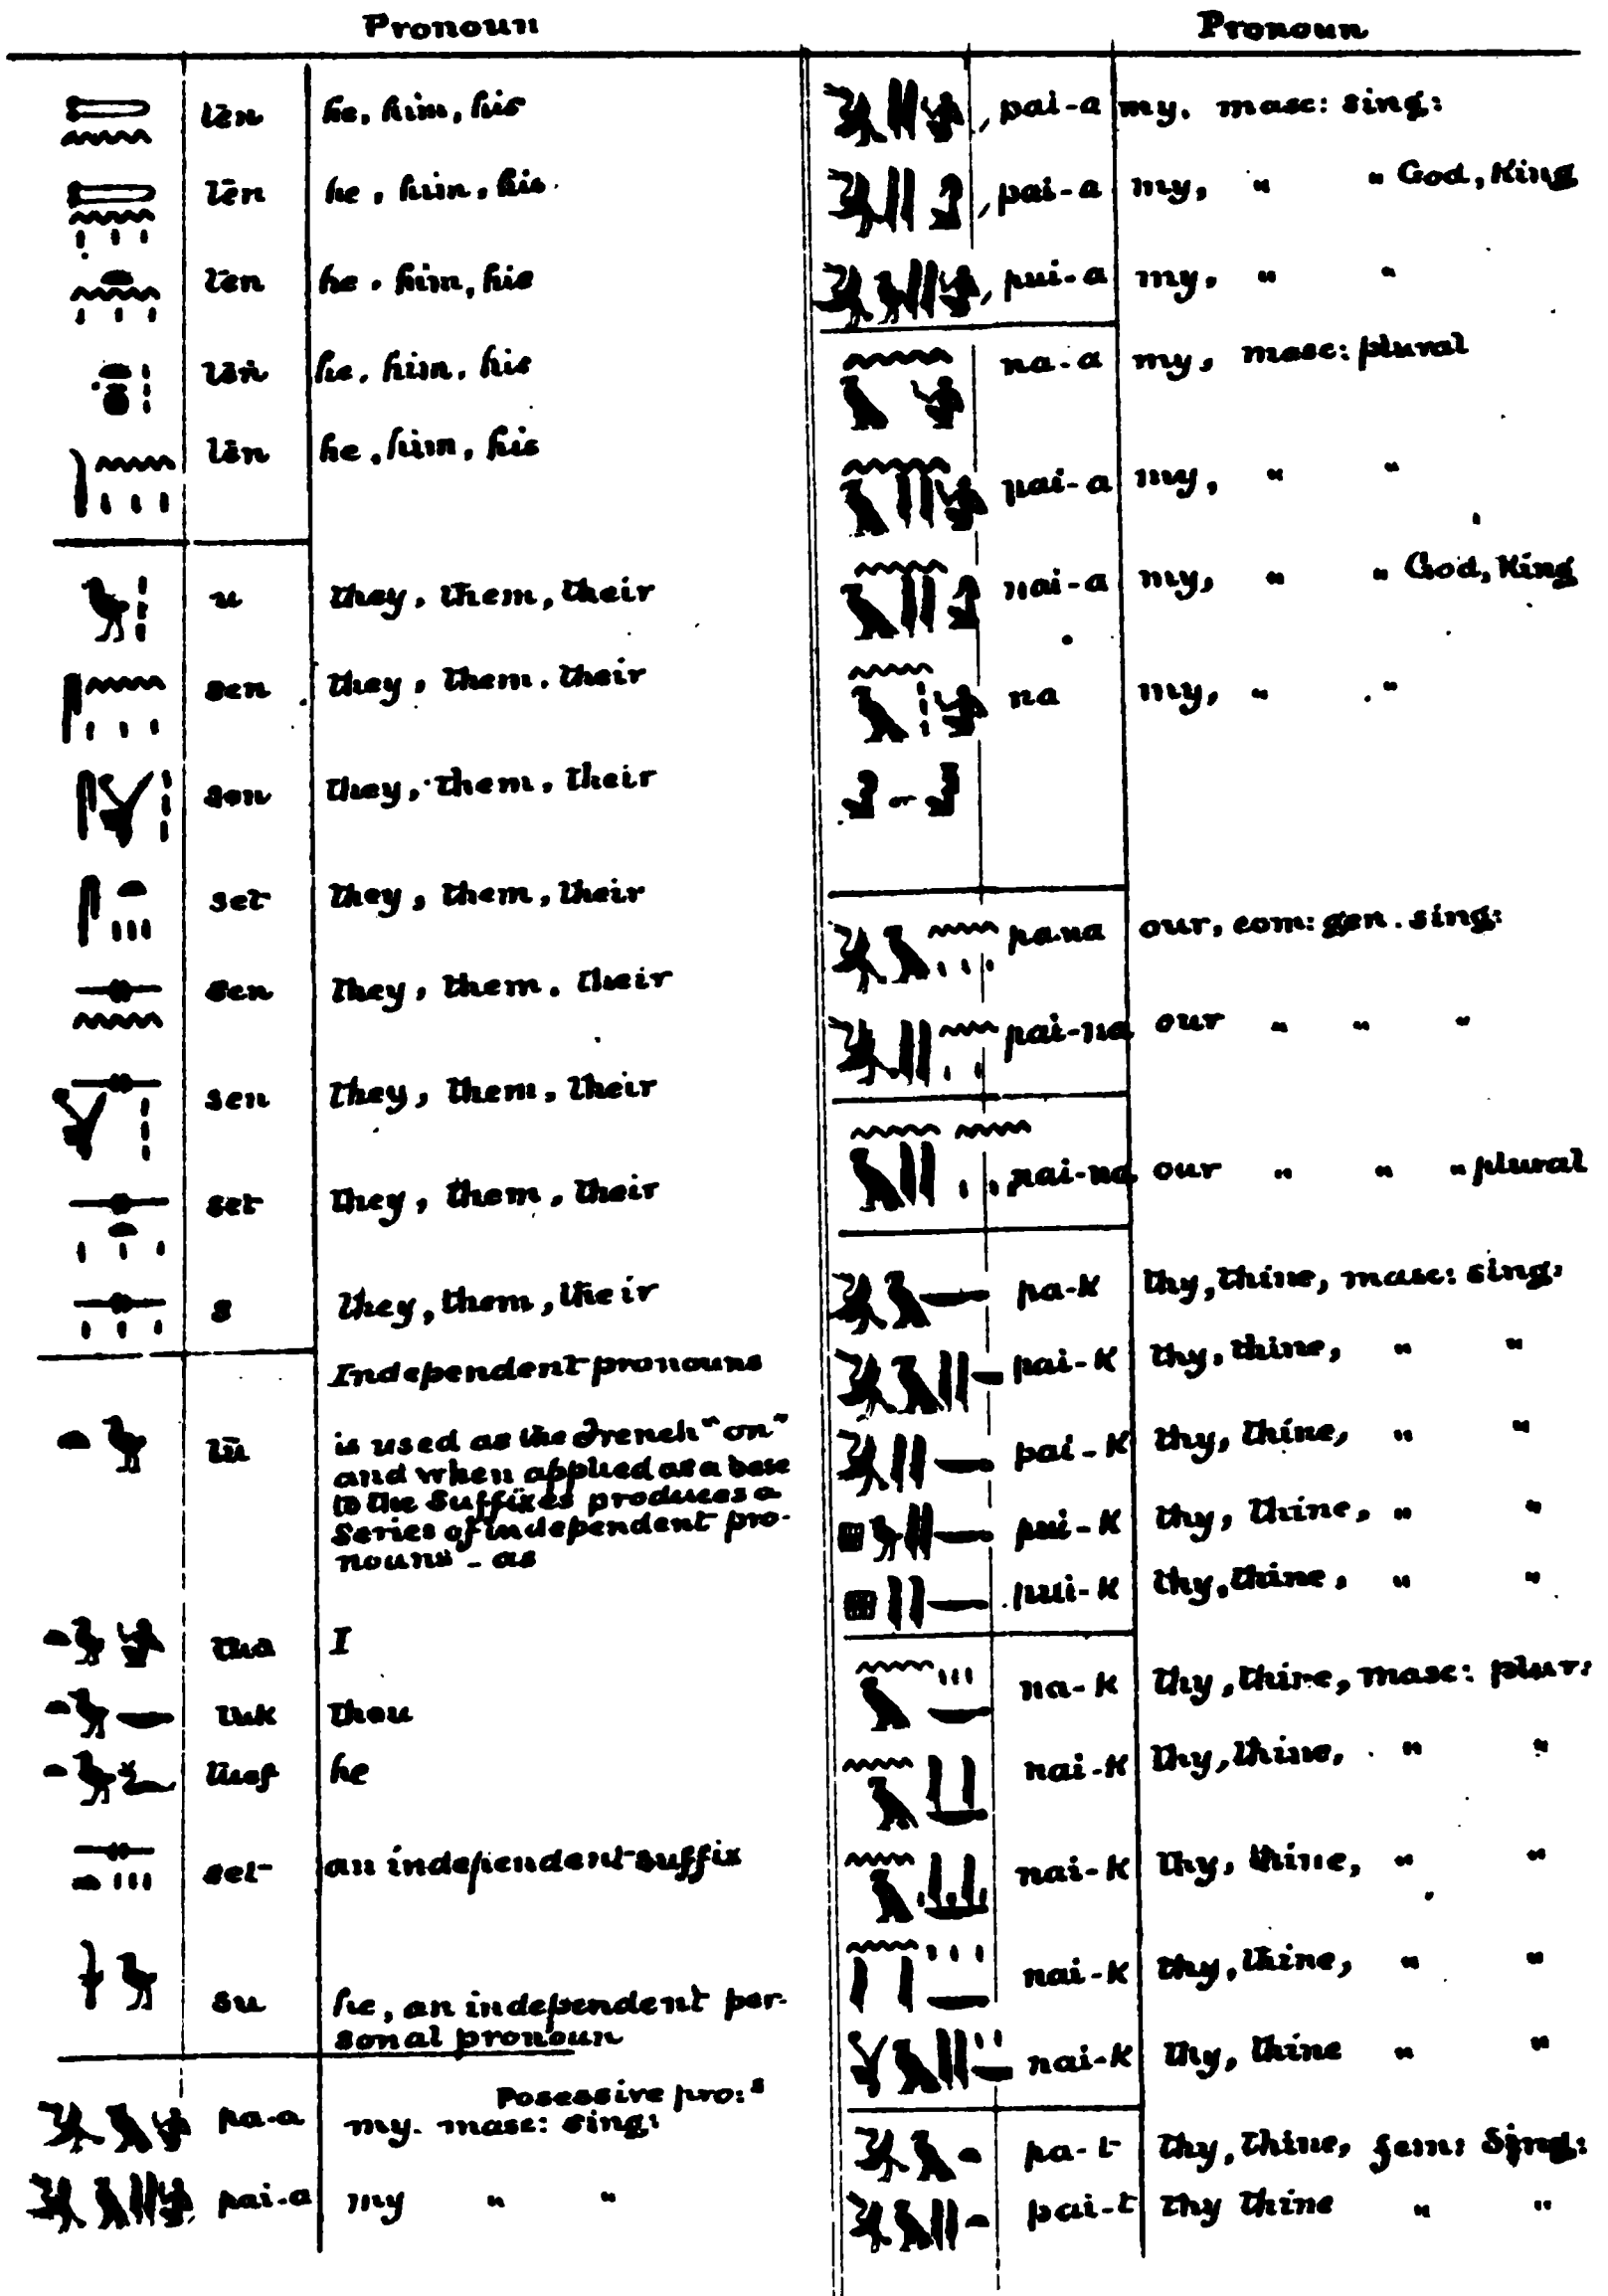 Pronoun
tēn he, him, his
tēn he, him, his.
ten he, him, his
tēn he, him, his
tēn he, him, his
u they, them, their
sen they, them, their
sen they, them, their
set they, them, their
sen they, them, their
sen they, them, their
set they, them, their
s they, them, their
Independent pronouns
tū is used as the French "on"
and when applied as a base
to the Suffixes produces a
Series of independent pro-
nouns - as
tua I
tuk thou
tuef he
set an independent suffix
su he, an independent per-
sonal pronoun
Posessive pro:s
pa-a my. masc: sing:
pai-a my " "
Pronoun
pai-a my. masc: sing:
pai-a my, " " God, King
pui-a my, " "
na-a my, masc: plural
pai-a my, " "
nai-a my, " " God, King
na my, " "
or
pa-na our, com: gen. sing:
pai-na our " " "
nai-na our " " " plural
pa-k thy, thine, masc: sing:
pai-k thy, thine, " "
pai-k thy, thine, " "
pui-k thy, thine, " "
pui-k thy, thine, " "
na-k thy, thine, masc: plur:
nai-k thy, thine, " "
nai-k thy, thine, " "
nai-k thy, thine, " "
nai-k thy, thine " "
pa-t thy, thine, fem: Sing:
pai-t thy thine " "